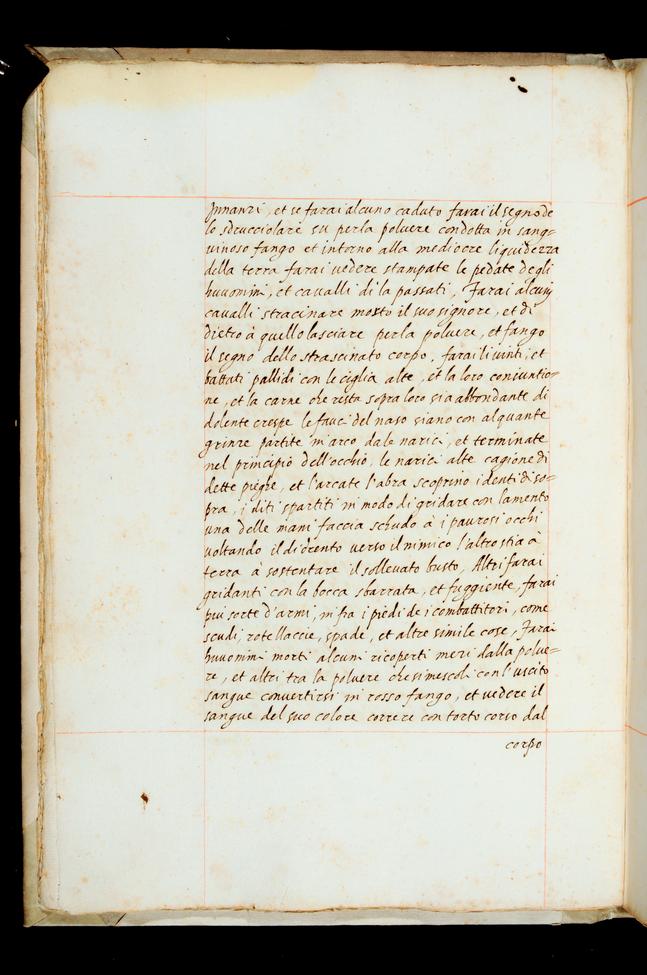 Innanzi, et se farai alcuno caduto farai il segno de
lo sdrucciolare su per la poluere condotta in sang=
uinoso fango et intorno alla mediocre liquidezza
della terra farai uedere stampate le pedate degli
huuomini, et caualli di la passati, Farai alcuni
caualli stracinare morto il suo signore, et di
dietro à quello lasciare per la poluere, et fango
il segno dello strascinato corpo, farai li uinti, et
battati pallidi con le ciglia alte, et la loro coniuntio=
ne, et la carne che resta sopra loro sia abbondante di
dolente crespe le fauci del naso siano con alquante
grinze partite in arco dale narici, et terminate
nel principio dell'occhio, le narici alte cagione di
dette pieghe, et l'arcate l'abra scoprino i denti di so=
pra, i diti spartiti in modo di gridare con lamento
una delle mani faccia schudo à i paurosi occhi
uoltando il di drento verso il nimico l'altro stia à
terra à sostentare il solleuato busto, Altri farai
gridanti con la bocca sbarrata, et fuggiente, farai
piu sorte d'armi, in fra i piedi de i combattitori, come
scudi, rotellaccie, spade, et altre simile cose, Farai
huuomini morti alcuni ricoperti mezi dalla polue=
re, et altri tra la poluere che si mescoli con l'uscito
sangue conuertirsi in rosso fango, et uedere il
sangue del suo colore correre con torto corso dal
corpo